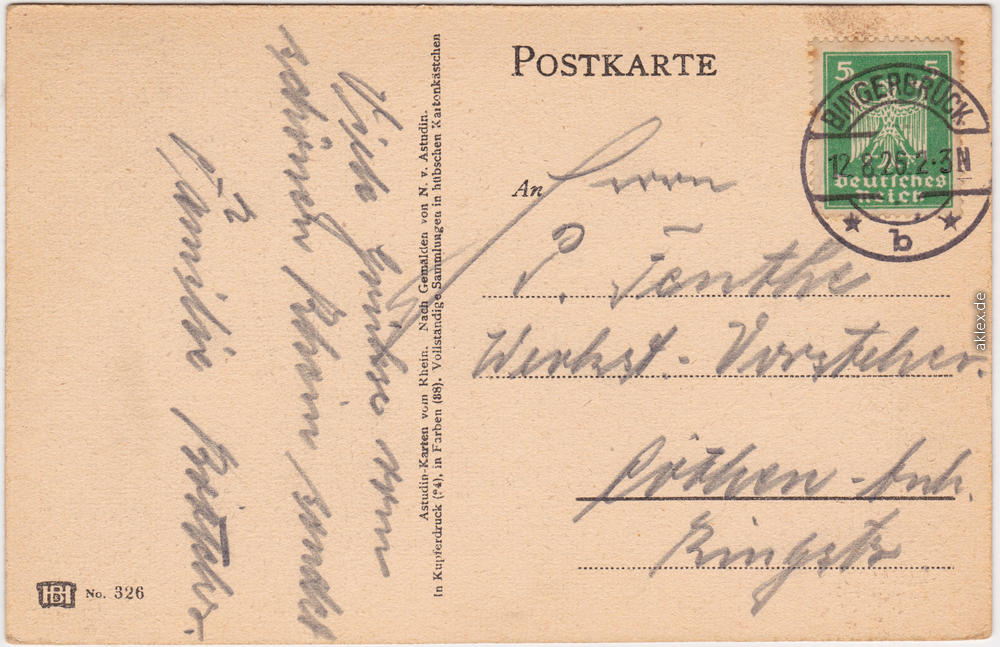 Viele Grüße vom
schönen Rhein sendet
Familie
POSTKARTE
An Herrn
P. Tenthe
Werkst. Vorsteher.
Cöthen-Anh.
Ringstr
5 5
Deutsches
Reich
BINGERBRÜCK.
12.8.26.2-3N
b
Astudin-Karten vom Rhein. Nach Gemälden von N. v. Astudin.
In Kupferdruck (94), in Farben (88). Vollständige Sammlungen in hübschen Kartonkästchen
HB No. 326
aklex.de